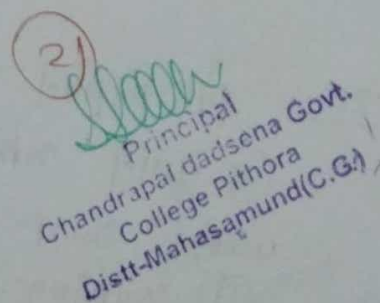 2
Principal
Chandrapal dadsena Govt.
College Pithora
Distt-Mahasamund(C.G.)